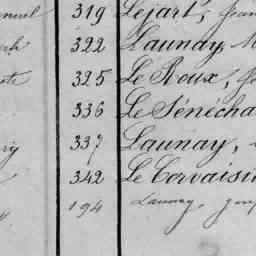 319 Lejart,
322 Launay,
325 Le Roux,
336 Le Sénécha
337 Launay,
342 Le Corvaisi
194 Launay,